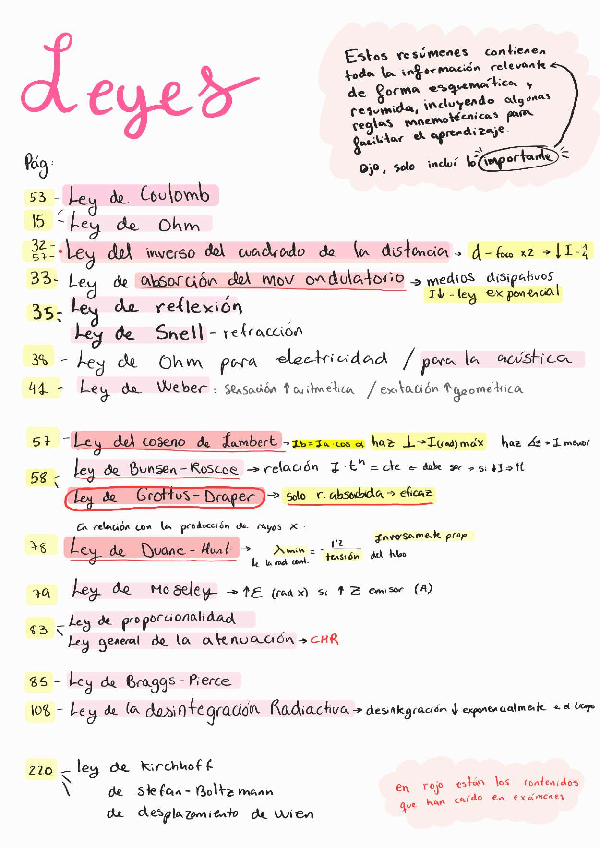 Leyes
Estos resúmenes contienen
toda la información relevante
de forma esquemática y
resumida, incluyendo algunas
reglas mnemotécnicas para
facilitar el aprendizaje.
Ojo, solo incluí lo importante
Pág:
53 - Ley de Coulomb
15 - Ley de Ohm
32 - 57 - Ley del inverso del cuadrado de la distancia → d-foco x2 → ↓I-1/4
33 - Ley de absorción del mov ondulatorio → medios disipativos
I↓ - ley exponencial
35 - Ley de reflexión
Ley de Snell - refracción
38 - Ley de Ohm para electricidad / para la acústica
41 - Ley de Weber: sensación ↑ aritmética / exitación ↑ geométrica
57 - Ley del coseno de Lambert → Ib = Ia · cos α haz ⊥ → I(rad) máx haz ∡ → I menor
58 - Ley de Bunsen-Roscoe → relación I · tⁿ = cte → debe ser → si ↓I ⇒ ↑t
Ley de Grottus-Draper → solo r. absorbida → eficaz
En relación con la producción de rayos X.
78 - Ley de Duane-Hunt → λ min = 1'2 / tensión del tubo
Inversamente prop
79 Ley de Moseley → ↑E (rad x) si ↑ Z emisor (A)
83 - Ley de proporcionalidad
Ley general de la atenuación → CHR
85 - Ley de Braggs-Pierce
108 - Ley de la desintegración Radiactiva → desintegración ↓ exponencialmente
220 - ley de Kirchhoff
de stefan-Boltzmann
de desplazamiento de Wien
en rojo están los contenidos
que han caído en exámenes